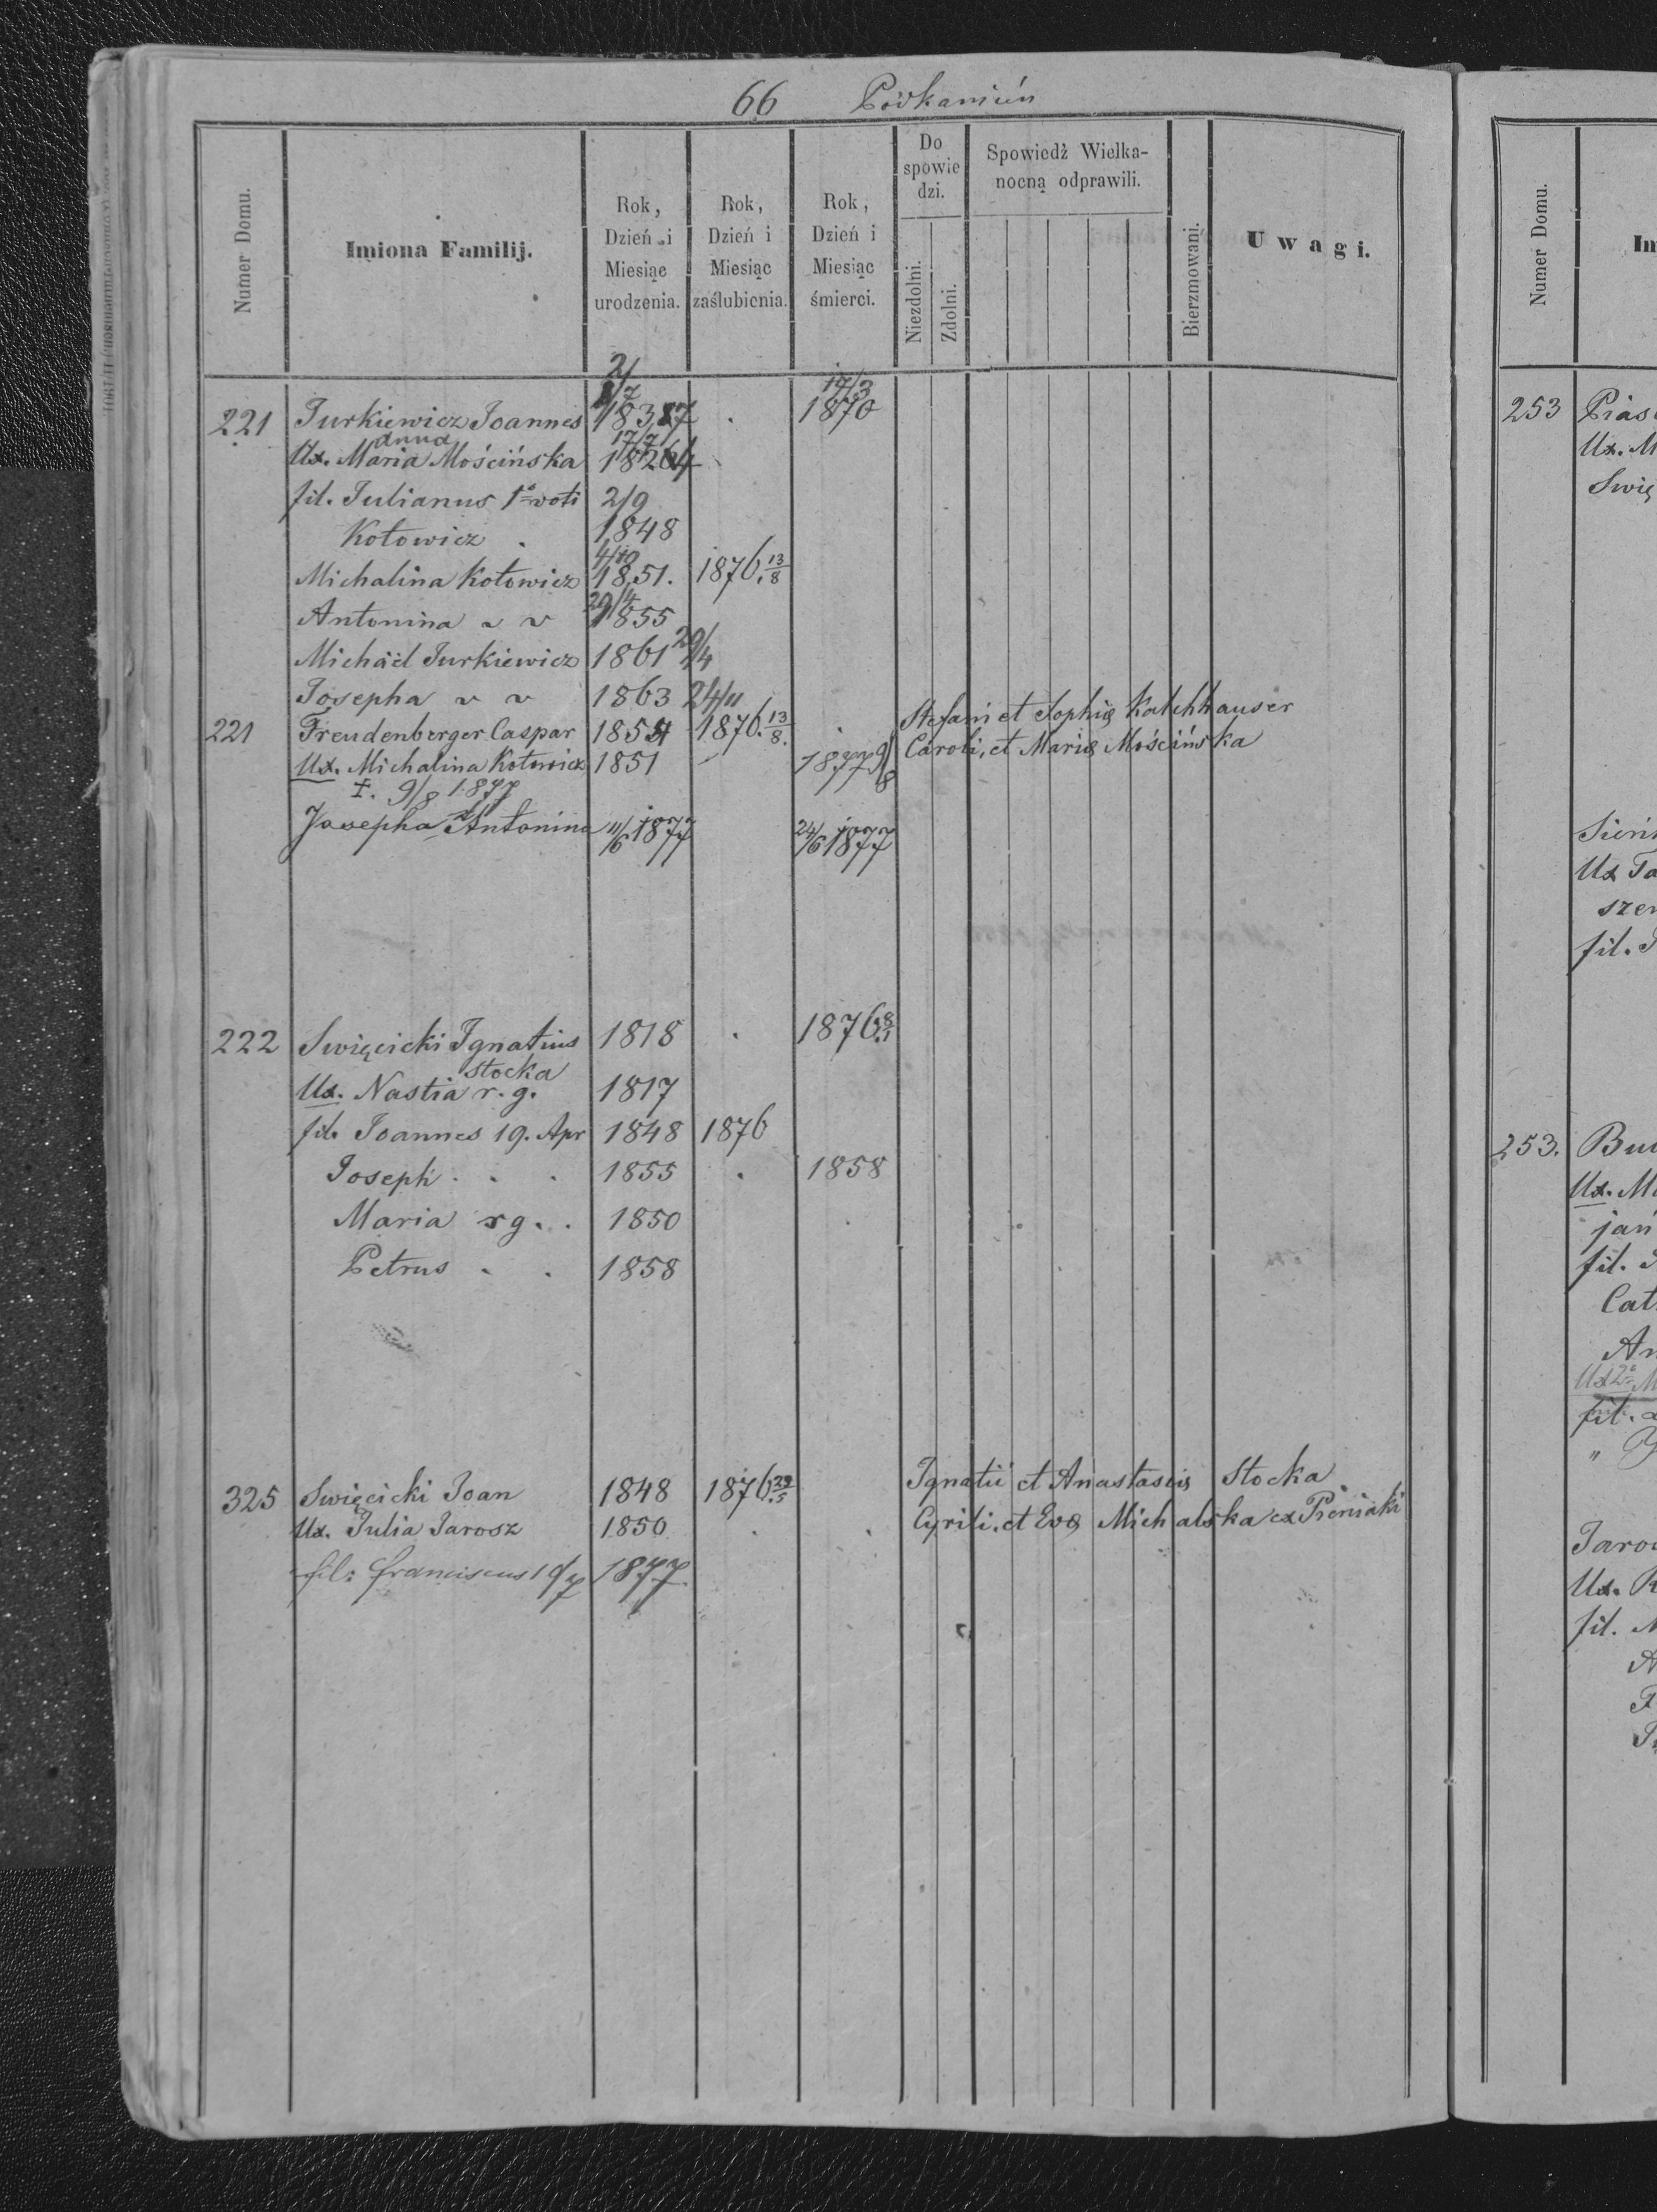 66 Podkamień
Numer Domu.
Imiona Familij.
Rok, Dzień i Miesiąc urodzenia.
Rok, Dzień i Miesiąc zaślubienia.
Rok, Dzień i Miesiąc śmierci.
Do spowie dzi.
Niezdolni.
Zdolni.
Spowiedź Wielka-
nocną odprawili.
Bierzmowani.
Uwagi.
17/3
221 Jurkiewicz Joannes 1870
Anna 17/7
Ux. Maria Mościńska
fil. Julianus 1o voti 2/9
Kotowicz . 1848
4/10
Michalina Kotowicz 1851. 1876. 13/8
29/4
Antonina 1855
Michaël Jurkiewicz 1861 29/4
Josepha 1863 24/11
221 Freudenberger Caspar 1876. 13/8. Stefani et Sophię Kalchhauser
Ux. Michalina Kotowicz 1851 1877 9/8 Caroli, et Marię Mościńska
‡. 9/8 1877
Josepha Antonina 11/6 1877 24/6 1877
222 Swięcicki Ignatius 1818 . 1876. 8/1
Stocka
Ux. Nastia r. g. 1817
fil. Joannes 19. Apr 1848 1876
Joseph . . . 1855 . 1858
Maria rg. . 1850
Petrus . . 1858
325 Swięcicki Joan 1848 1876. Ignatii et Anastasię Stocka
Ux. Julia Jarosz 1850 . . Cyrili. et Evę Michalska ex Pieniaki
fil: Franciscus 1877
Numer Domu.
Im
253 Pias
Ux. M
Swię
Sień
Ux Ta
szer
fil.
253. Bu
Ux. M
jań
fil.
Cat
An
Ux 2o M
fil.
Jaro
Ux. K
fil.